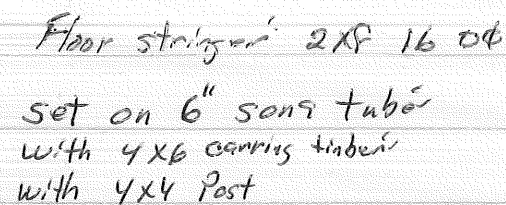 Floor stringer 2x8 16 oc
set on 6" sona tube
with 4x6 carring timber
with 4x4 Post